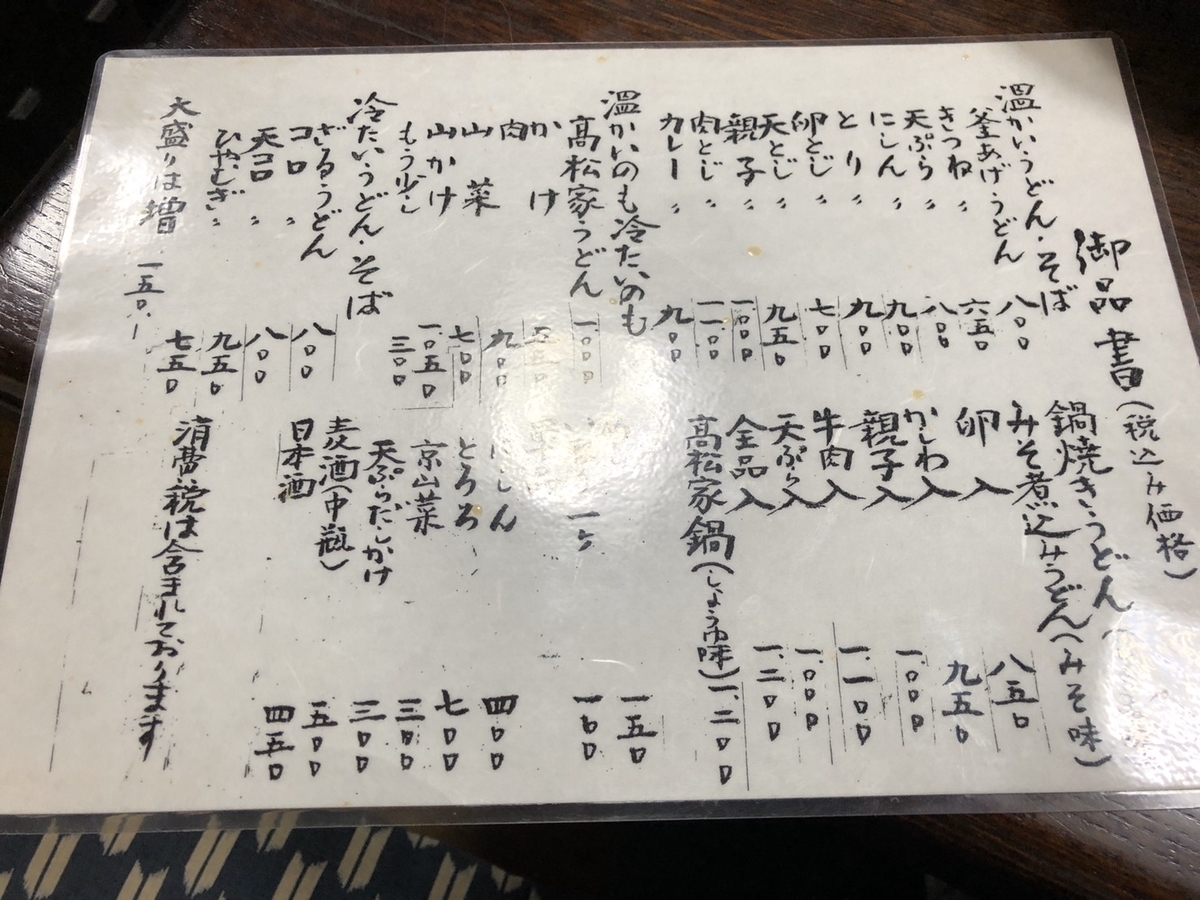 御品書(税込み価格)
温かいうどん・そば
釜あげうどん 八〇〇
きつね〃 六五〇
天ぷら〃 八〇〇
にしん〃 九〇〇
とり〃 九〇〇
卵とじ〃 七〇〇
天とじ〃 九五〇
親子〃 一、〇〇〇
肉とじ〃 一、一〇〇
カレー〃 九〇〇
温かいのも冷たいのも
高松家うどん 一、〇〇〇
かけ
肉 九〇〇
山菜 七〇〇
山かけ 一、〇五〇
もう少し 三〇〇
冷たいうどん・そば
ざるうどん 八〇〇
コロ〃 八〇〇
天コロ〃 九五〇
ひやむぎ〃 七五〇
大盛りは増 一五〇.ー
鍋焼きうどん
みそ煮込みうどん(みそ味)
卵入 八五〇
かしわ入 九五〇
親子入 一、〇〇〇
牛肉入 一、一〇〇
天ぷら入 一、〇〇〇
全品入 一、二〇〇
高松家鍋(しょうゆ味) 一、二〇〇
一五〇
一〇〇
にしん 四〇〇
とろろ 七〇〇
京山菜 三〇〇
天ぷらだしかけ 三〇〇
麦酒(中瓶) 五〇〇
日本酒 四五〇
消費税は含まれております